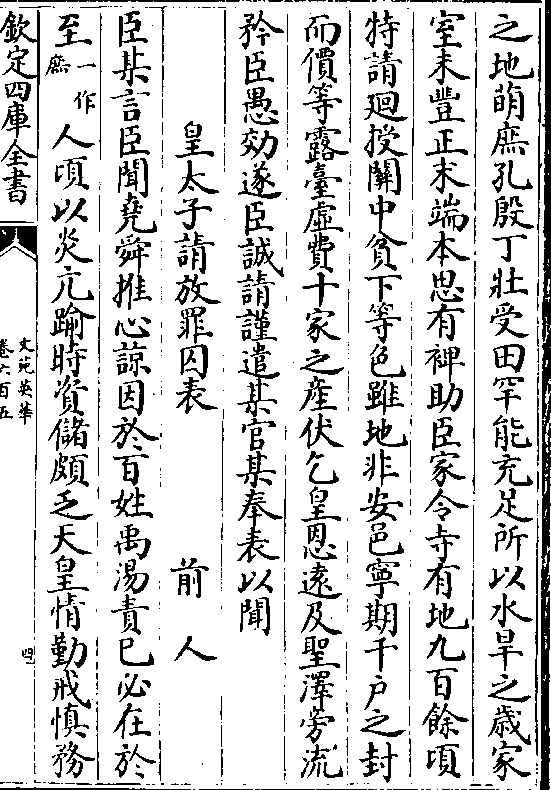 之地萌庶孔殷丁壯受田罕能充足所以水旱之歳家
室未豐正末端本思有裨助臣家令寺有地九百餘頃
特請廻授關中貧下等色雖地非安邑寧期千户之封
而價等露臺虛費十家之産伏乞皇恩遠及聖澤旁流
矜臣愚効遂臣誠請謹遣某官某奉表以聞
皇太子請放罪囚表 前人
臣某言臣聞堯舜推心諒因於百姓禹湯責己必在於
至一作庶人頃以炎亢踰時資儲頗乏天皇情勤戒慎務
欽定四庫全書
文苑英華
卷六百五
四